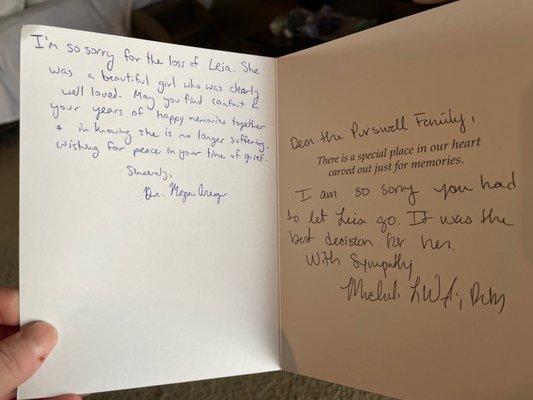 I'm so sorry for the loss of Leia. She
was a beautiful girl who was clearly
well loved. May you find comfort in
your years of happy memories together
+ in knowing she is no longer suffering.
Wishing for peace in your time of grief.
Sincerely,
Dr. Megan
Dear the Purswell Family,
There is a special place in our heart
carved out just for memories.
I am so sorry you had
to let Leia go. It was the
best decision for her.
With Sympathy